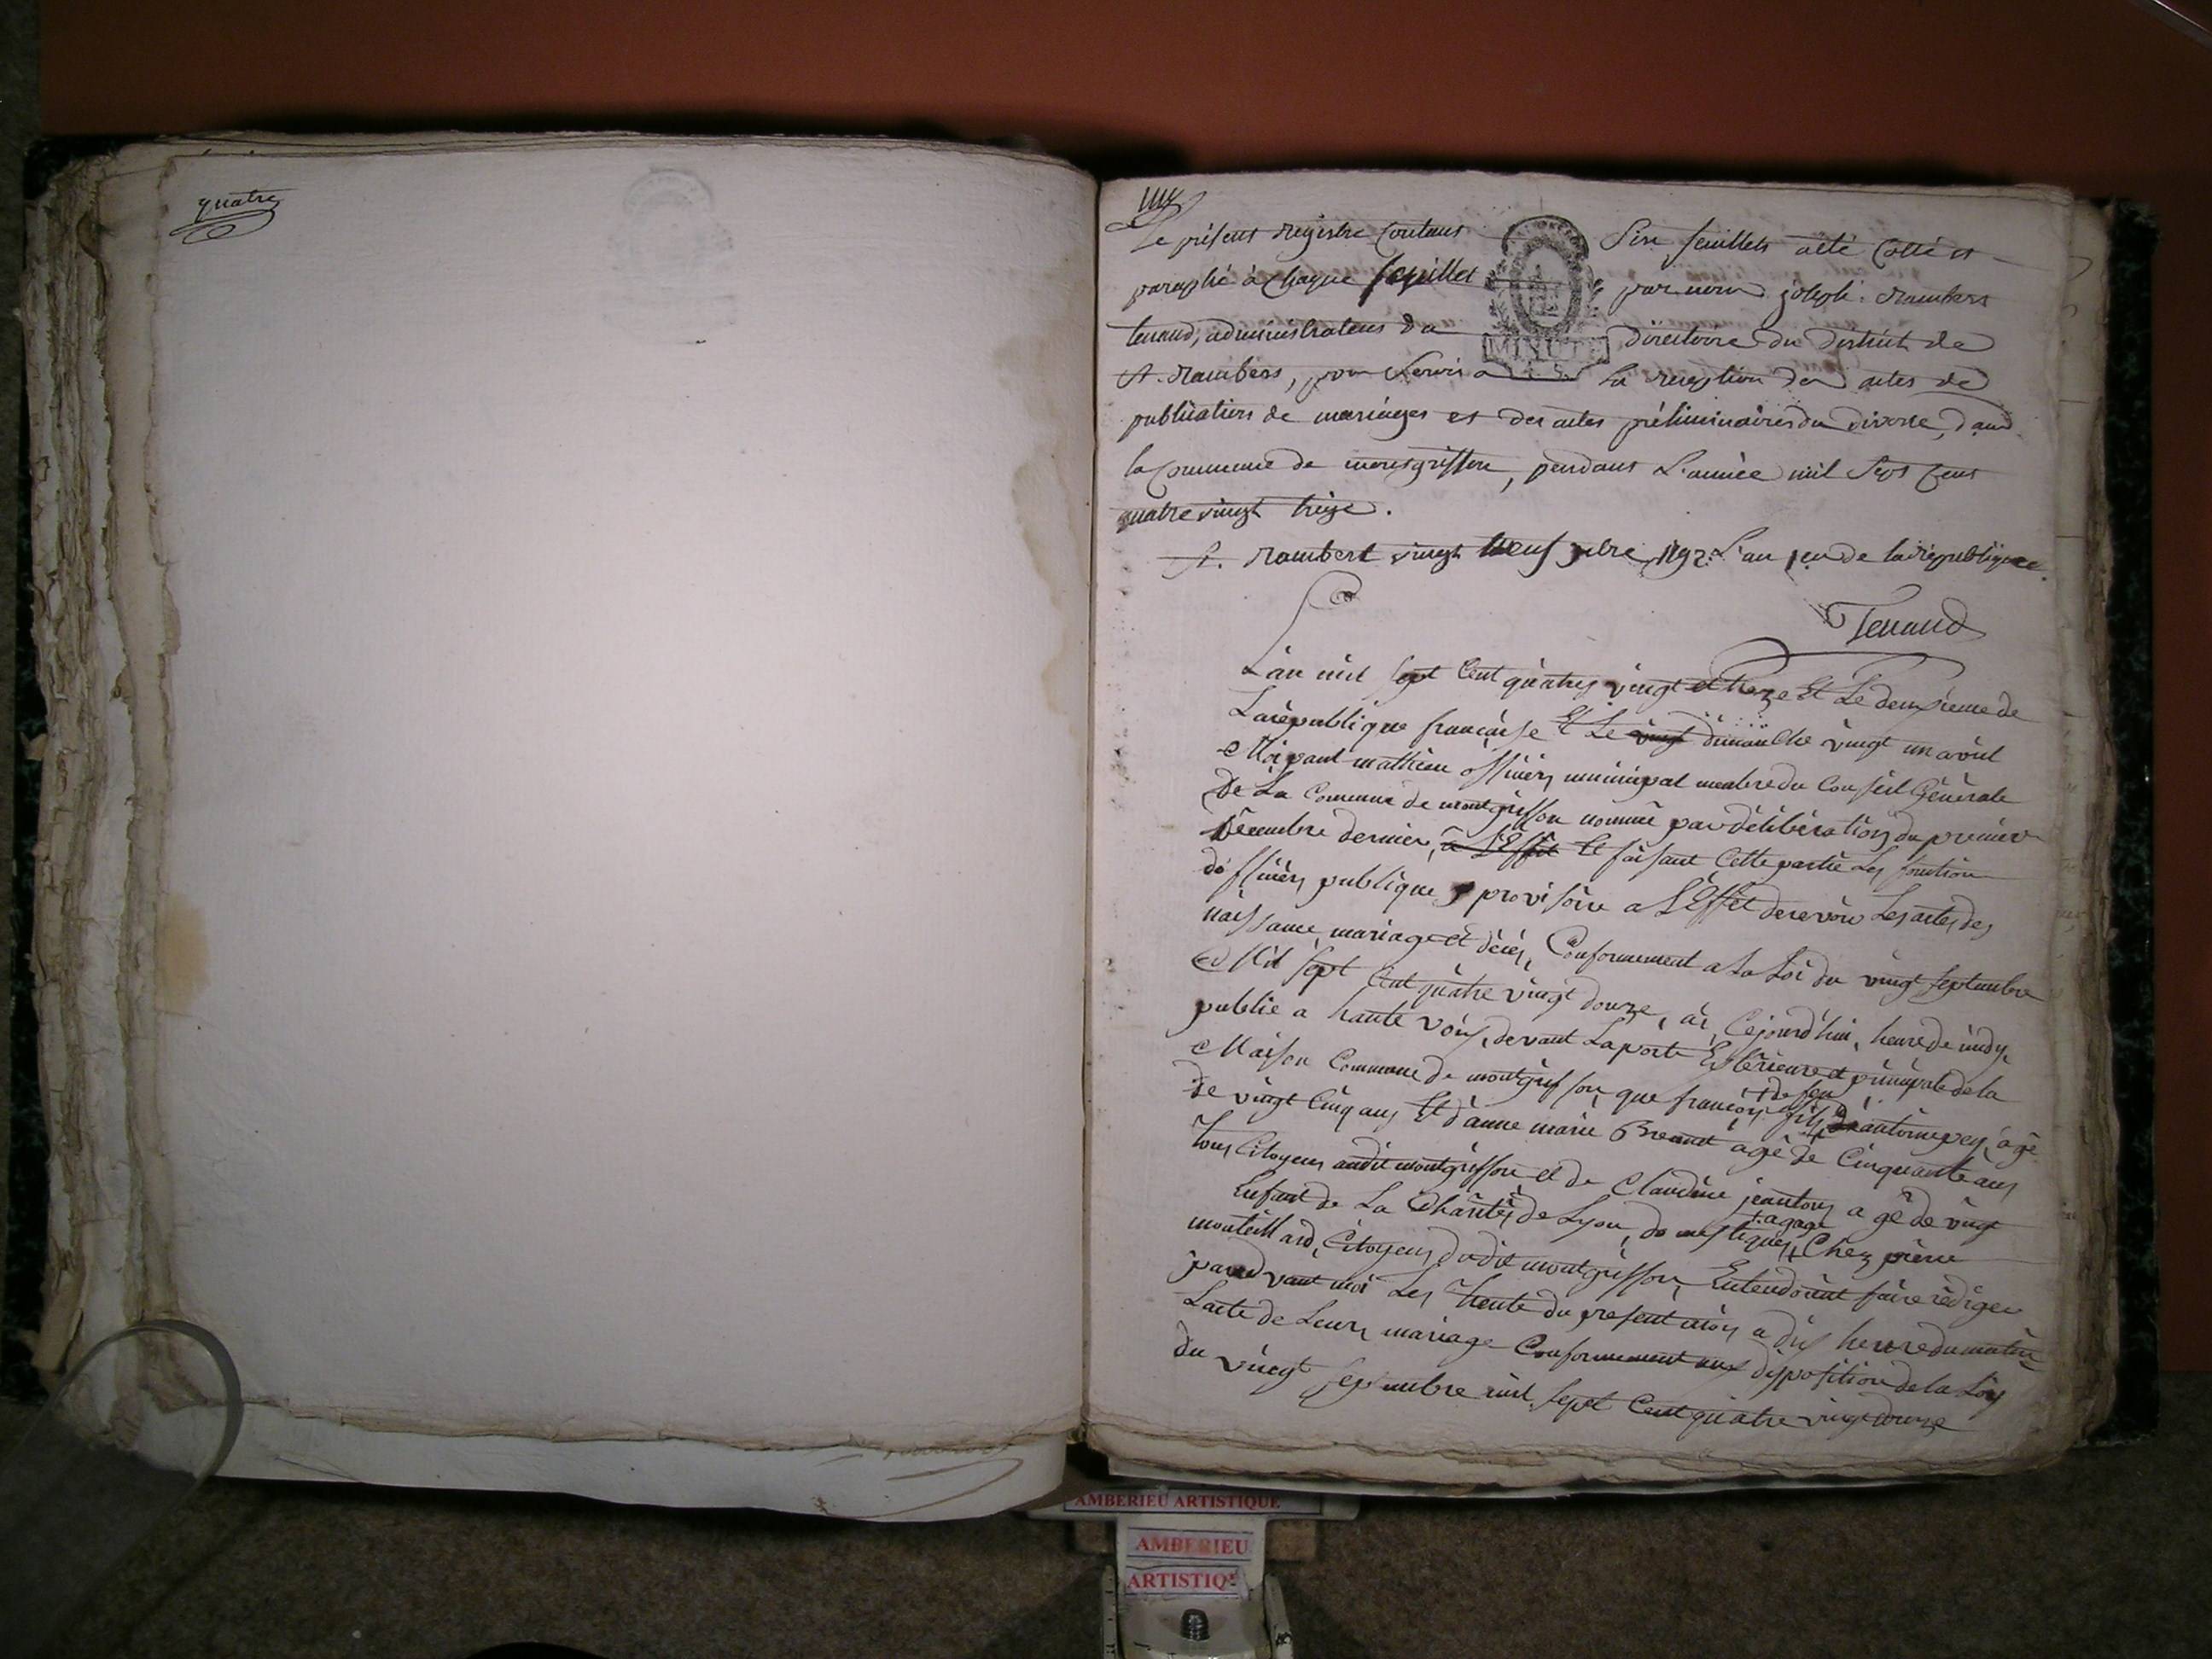 quatre
Le présent registre contenant six feuillets a été cotté et
paraphé à chaque feuillet par nous joseph rambert
tenand, administrateur du directoire du district de
St. rambert, pour servir a la reception des actes de
publication de mariages et des actes préliminaires du divorce, dans
la Commune de montgriffon, pendant L'année mil sept cent
quatre vingt treize.
St. rambert vingt neuf 1792 L'an 1er de la république
MINUTE
Tenand
L'an mil sept Cent quatres vingt et treze Et Le deuxieme de
La république française Et Le vingt dimanche vingt un
Moi paul mathieu officier municipal membre du Conseil Générale
de La Commune de montgriffon nommé par délibération du premier
décembre dernier, a L'Effet Et faisant Cette partie Les fonction
d'officier publique provisoire a L'Effet de revoir Les actes des
naissance mariage et décès, Conformement a La Loi du vingt septembre
Mil sept Cent quatre vingt douze, ai, Cejourd'hui, heure de midy
publié a haute voix, devant La porte Exterieure et principale de la
Maison Commune de montgriffon, que françois fils + de feu antoine pey, agé
de vingt Cinq ans Et d'anne marie agé de Cinquante ans
tous Citoyens audit montgriffon et de Claudine jeanton agé de vingt
Enfant de La Charité de Lyon, domestiques, + a gage Chez pierre
monteillard, Citoyens dudit montgriffon, Entendoint faire rédiger
pardevant moi Les trente du present mois a dix heure du matin
Lacte de Leurs mariage Conformement aux disposition de la Loy
du vingt septembre mil sept Cent quatre vingt douze
AMBERIEU ARTISTIQUE
AMBERIEU
ARTISTIQ